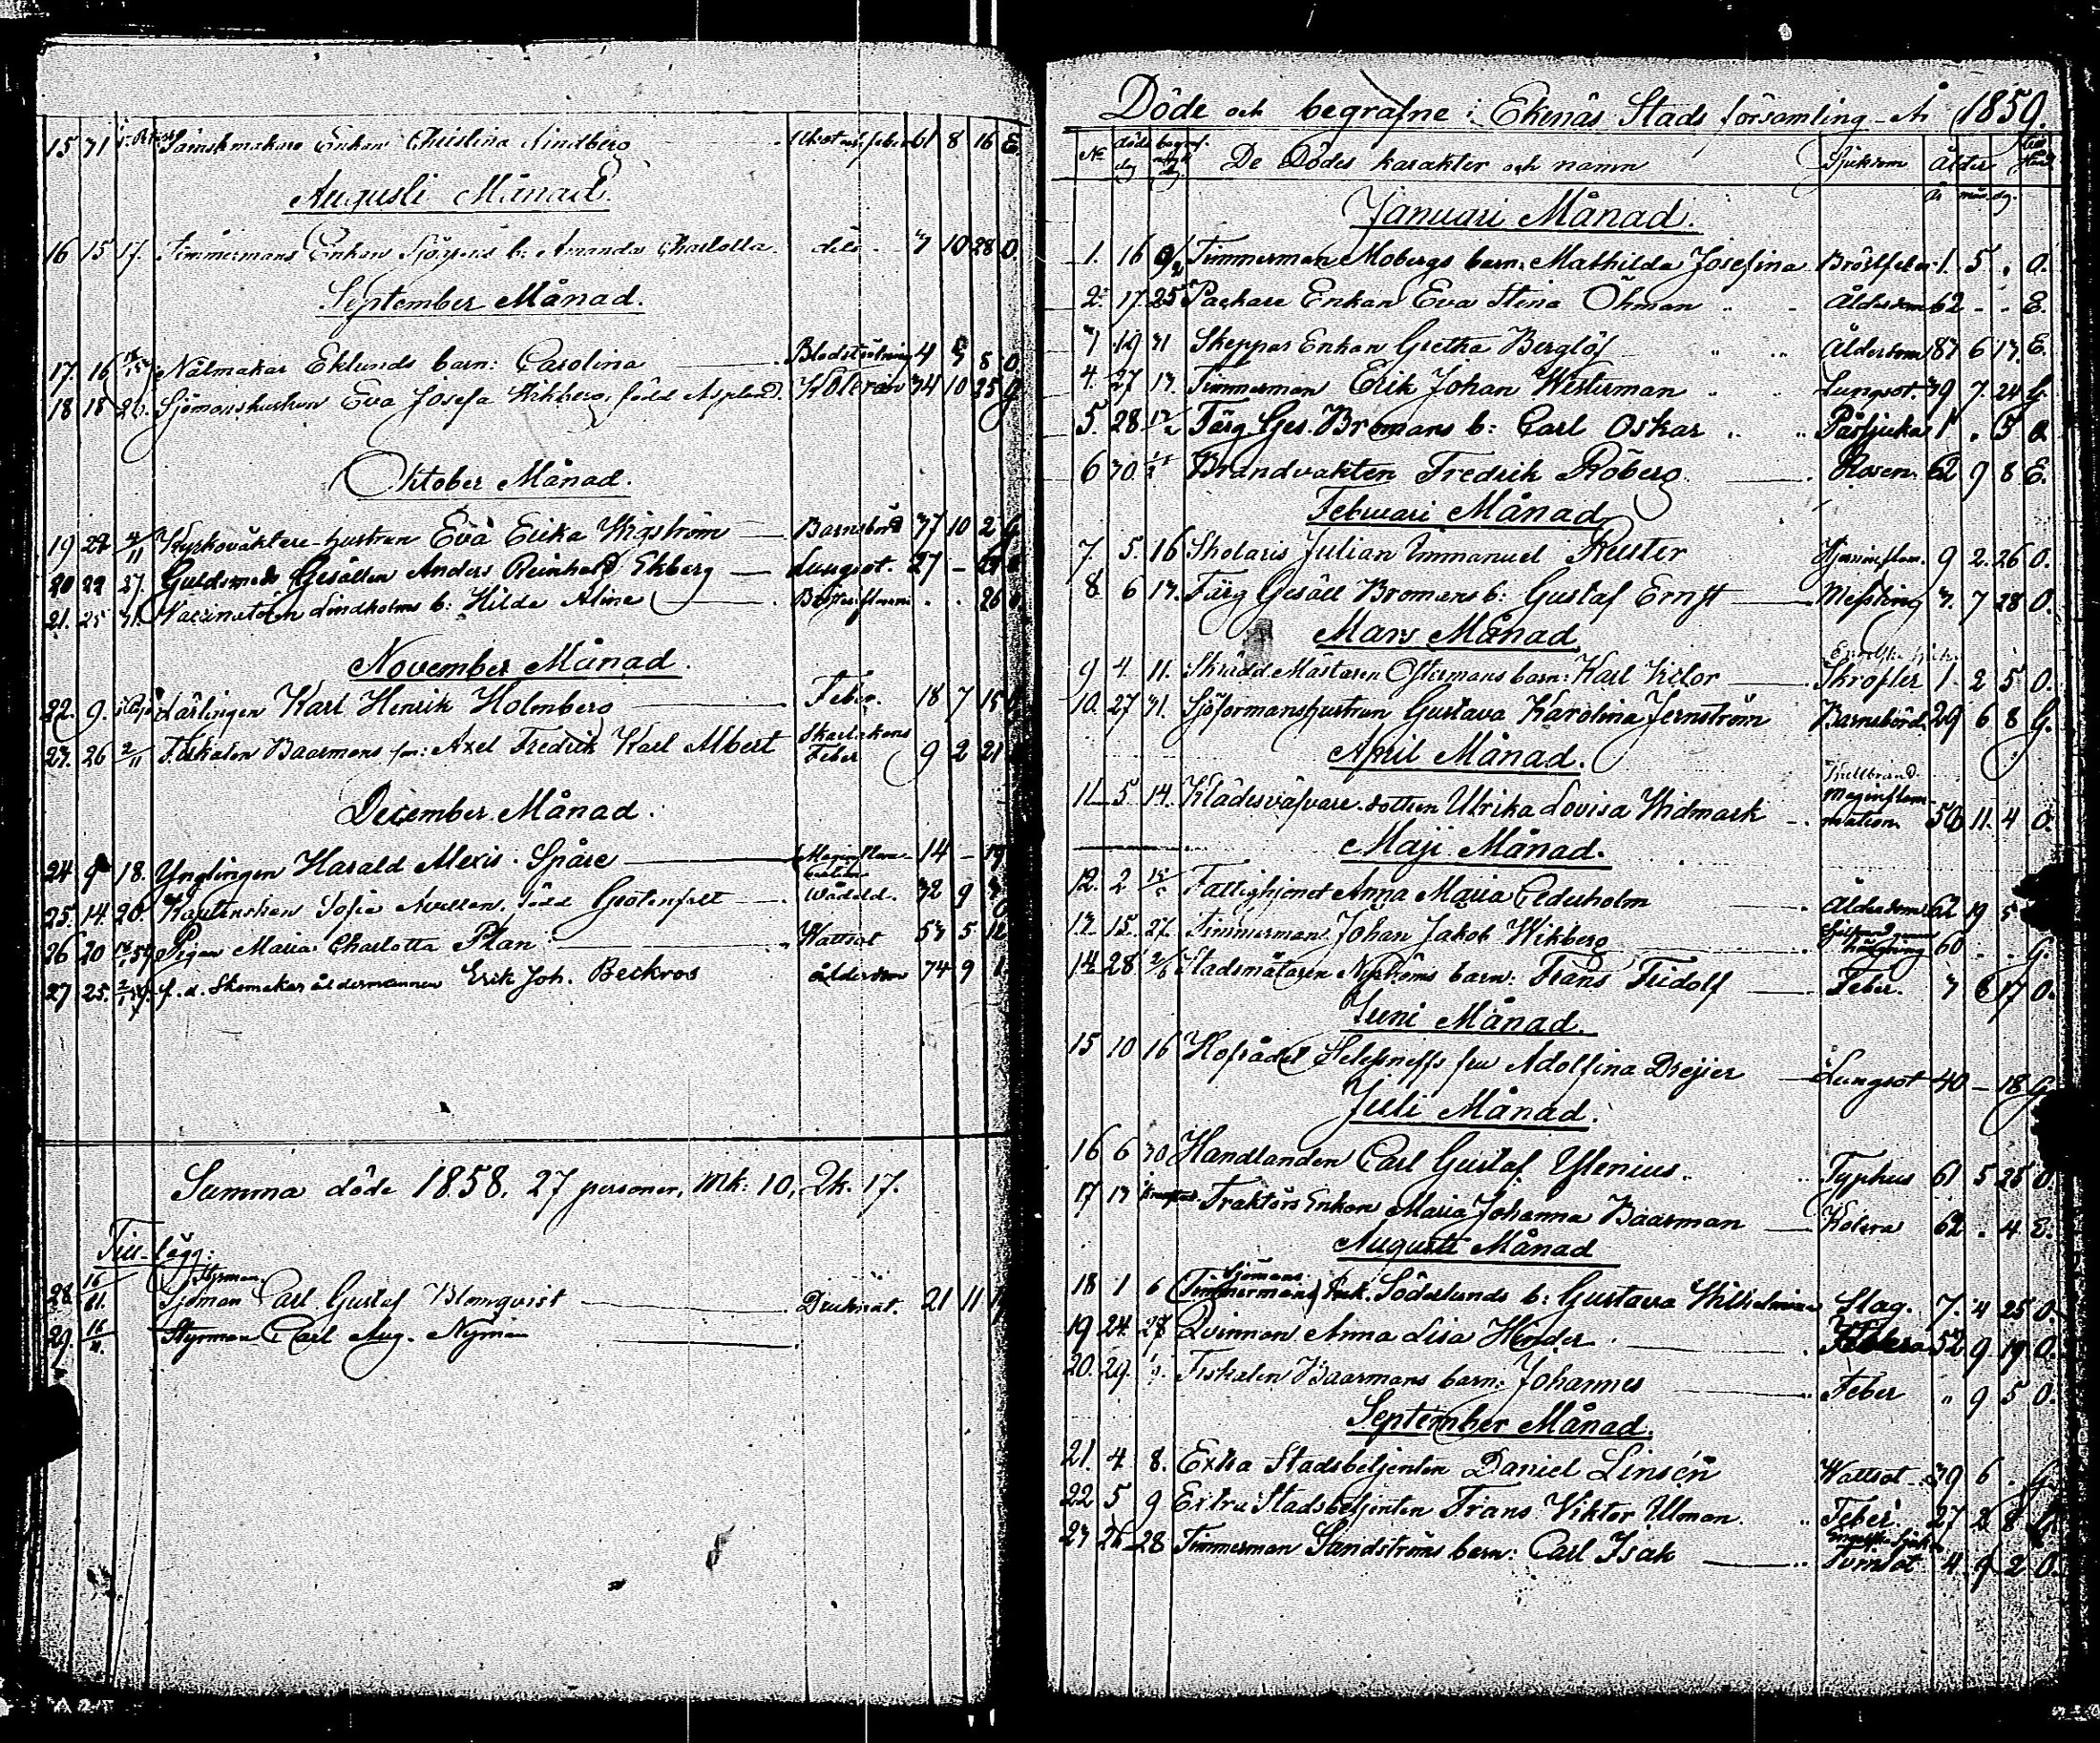 15 31 Sämskmakare Enkan Christina Lindberg 61 8 16 E.
Augusti Månad.
16 15 17. Timmermans Enkan b: Amanda Charlotta dito 3 10 28 O.
September Månad.
17. 16 Nålmakar Eklunds barn: Carolina Blodstörtning 4 5 8 O.
18 18 Sjömanshustrun Eva Josefa Wikberg, född Asplund. Koleran 34 10 25 G.
Oktober Månad.
19 22 4/11 Kyrkoväktare-hustrun Eva Erika Wigström Barnsbörd 37 10 2 G.
20 22 27. Guldsmeds Gesällen Anders Reinhold Ekberg Lungsot. 27 –
21. 25 31. Vaccinatören Lindholms b: Hilda Alina . . 26 O
November Månad.
22. 9. Lärlingen Karl Henrik Holmberg Feber. 18 7 15
23. 26 2/11 Fiskalen Baarmans son: Axel Fredrik Karl Albert Skarlakans
Feber 9 2 21
December Månad.
24 9 18. Ynglingen Harald Alexis Spåre 14 – 19
25. 14. 20 Kaptenskan Sofia född Grotenfelt Vådeld. 32 9
26 20 Pigan Maria Charlotta Plan Wattsot 53 5 12
27 25. f. d. Skomakar åldermannen Erik Joh. Beckros ålderdom 74 9 1.
Summa döde 1858. 27 personer, Mk: 10, Qk. 17.
Till-lägg:
Styrman
28. 16/11. Sjöman Carl Gustaf Blomqvist Drunknat. 21 11
29. 16/11. Styrman Carl Aug. Nyman
Döde och begrafne i Ekenäs Stads församling År 1859.
No döds dag begraf. De Dödes karakter och namn Sjukdom Ålder
År mån. dag.
Januari Månad.
1. 16 9/2 Timmerman Mobergs barn: Mathilda Josefina Bröstfeber 1. 5 . O.
2. 17. 25 Packare Enkan Eva Stina Öhman Ålderdom 62 - . E.
3 19 31 Skeppar Enkan Gretha Berglöf Ålderdom 87 6 13. E.
4. 27 13. Timmerman Erik Johan Westerman Lungsot. 39 7. 24 G.
5. 28 Färg Ges. Bromans b: Carl Oskar 1 . 5 O
6 30. Brandvakten Fredrik Röberg Rosen. 62 9 8 E.
Februari Månad
7 5. 16 Skolaris Julian Immanuel Reuter Hjerninflam. 9 2. 26 O.
8 6 13. Färg Gesäll Bromans b: Gustaf Ernst Messling 3. 7 28 O.
Mars Månad.
9 4. 11. Skrädd. Mästaren Ostermans barn: Karl Victor Skrofler 1. 2 5 O.
10. 27 31. Sjöformanshustrun Gustava Karolina Jernström Barnsbörd. 29 6 8 G.
April Månad.
Kallbrand.
11 5. 14. Klädesväfvare-dottern Ulrika Lovisa Widmark Maginflam-
mation 50 11. 4 O.
Maji Månad.
12. 2 Fattighjonet Anna Maria Cederholm Ålderdom 62 19 5
13. 15. 27. Timmerman Johan Jakob Wikberg 60 . . G.
14. 28 2/6 Stadsmätaren Nyströms barn: Frans Fridolf Feber. 3 6 17 O.
Juni Månad.
15 10 16 Hofrådet fru Adolfina Dreijer Lungsot 40 – 18 G
Juli Månad.
16 6 30 Handlanden Carl Gustaf Ylenius Typhus 61 5 25 O
17 13 Traktörs Enkan Maria Johanna Baarman Kolera 62 . 4 E.
Augusti Månad
Sjömans
18 1 6 (Timmermans) Söderlunds b: Gustava Wilhelmina Slag. 7. 4 25 O.
19 24. 28 Qvinnan Anna Lisa Hinder 52 9. 19 O.
20. 29. Fiskalen Baarmans barn: Johannes Feber " 9 5 O.
September Månad.
21. 4. 8. Extra Stadsbetjenten Daniel Linsén Wattsot 39 6 . G.
22 5 9 Extra Stadsbetjenten Frans Viktor Ulman. Feber. 27 2 8
Engelska Sjuk.
23 26 28 Timmerman Sandströms barn: Carl Isak 4. 9 2 O.